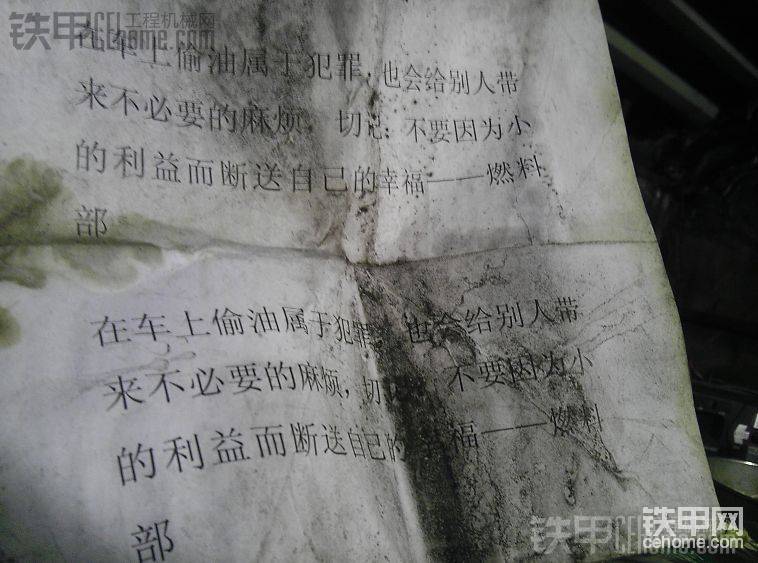 铁甲 工程机械网
CEhome.com
在车上偷油属于犯罪，也会给别人带
来不必要的麻烦，切记：不要因为小
的利益而断送自己的幸福——燃料
部
在车上偷油属于犯罪，也会给别人带
来不必要的麻烦，切 不要因为小
的利益而断送自己的 福——燃料
部
铁甲网
cehome.com